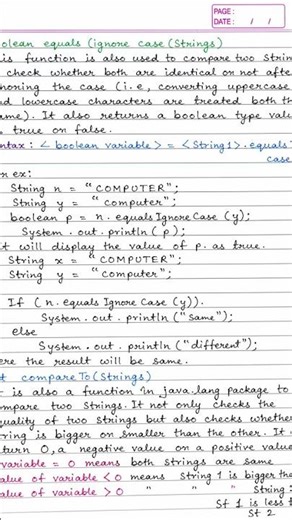 PAGE :
DATE : / /
olean equals (ignore case (Strings)
is function is also used to compare two Strin
check whether both are identical on not afte
noring the case (i.e, converting uppercase
nd lowercase characters are treated both th
ame). It also returns a boolean type valu
true on false.
ntax : < boolean variable > = < String1 > . equals
case
n ex:
String n = "COMPUTER";
String y = "computer";
boolean p = n. equalsIgnore Case (y);
System . out . println (p);
t will display the value of p. as true.
String x = "COMPUTER";
String y = "computer";
If (n. equals Ignore Case (y)).
System . out . println ("same");
else
System . out . println ("different");
ere the result will be same.
t compareTo (Strings)
t is also a function in java.lang package to
mpare two Strings. It not only checks the
quality of two strings but also checks whethe
ring is bigger on smaller than the other. It
turn 0, a negative value on a positive value
variable = 0 means both strings are same
alue of variable < 0 means String 1 is bigger the
alue of variable > 0 " " String
St 1 is less
St 2